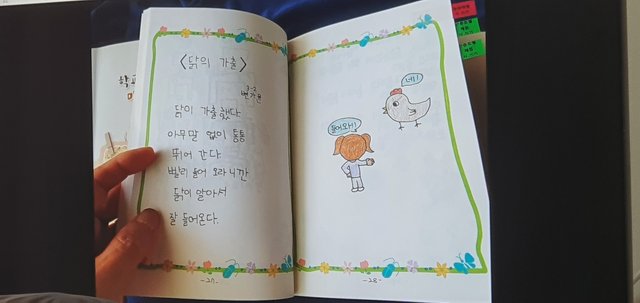 <닭의 가출>
닭이 가출했다
아무말 없이 동동
뛰어 간다
빨리 들어 오라니깐
닭이 알아서
잘 들어온다.
-27-
들어와!
네!
-28-